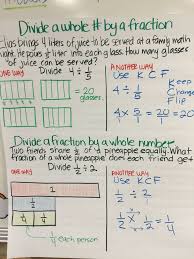 Divide a whole # by a fraction
Elias brings 4 liters of juice to be served at a family math
night. He pours 1/5 liter into each glass. How many glasses
of juice can be served?
ONE WAY Divide 4 ÷ 1/5 ANOTHER WAY
Use K C F
= 20 glasses
4 ÷ 1/5
Keep
Change
Flip
4 x 5/1 = 20/1 = 20
Divide a fraction by a whole number
Two friends share 1/2 of a pineapple equally. What
fraction of a whole pineapple does each friend get?
ONE WAY Divide 1/2 ÷ 2 ANOTHER WAY
Use KCF
1
1/2
1/4 1/4
1/4 each person
1/2 ÷ 2/1
1/2 x 1/2 = 1/4